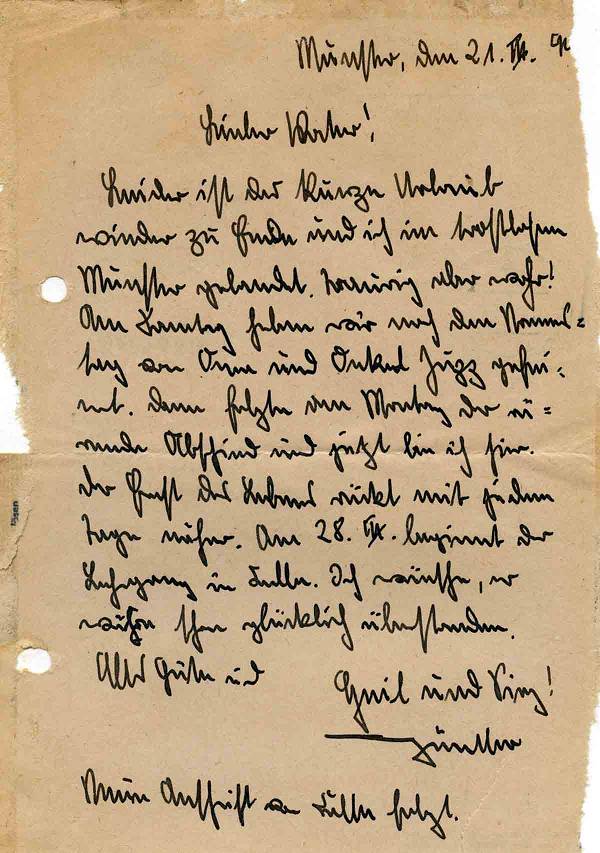 Münster, den 21. IX.
Lieber Vater!
Leider ist der kurze Urlaub
wieder zu Ende und ich im trostlosen
Münster gelandet. traurig aber wahr!
Am Samtag haben wir noch den Namens=
tag von Oma und Onkel gefei=
ert. dann folgte am Montag der rü=
rende Abschied und jetzt bin ich hier.
Der Ernst des Lebens rückt mit jedem
Tage näher. Am 28. IX. beginnt der
Lehrgang in Celle. Ich wünsche, er
schon glücklich überstanden.
Alles Gute und
Heil und Sieg!
Günther
Meine Anschrift in Celle folgt.
Essen